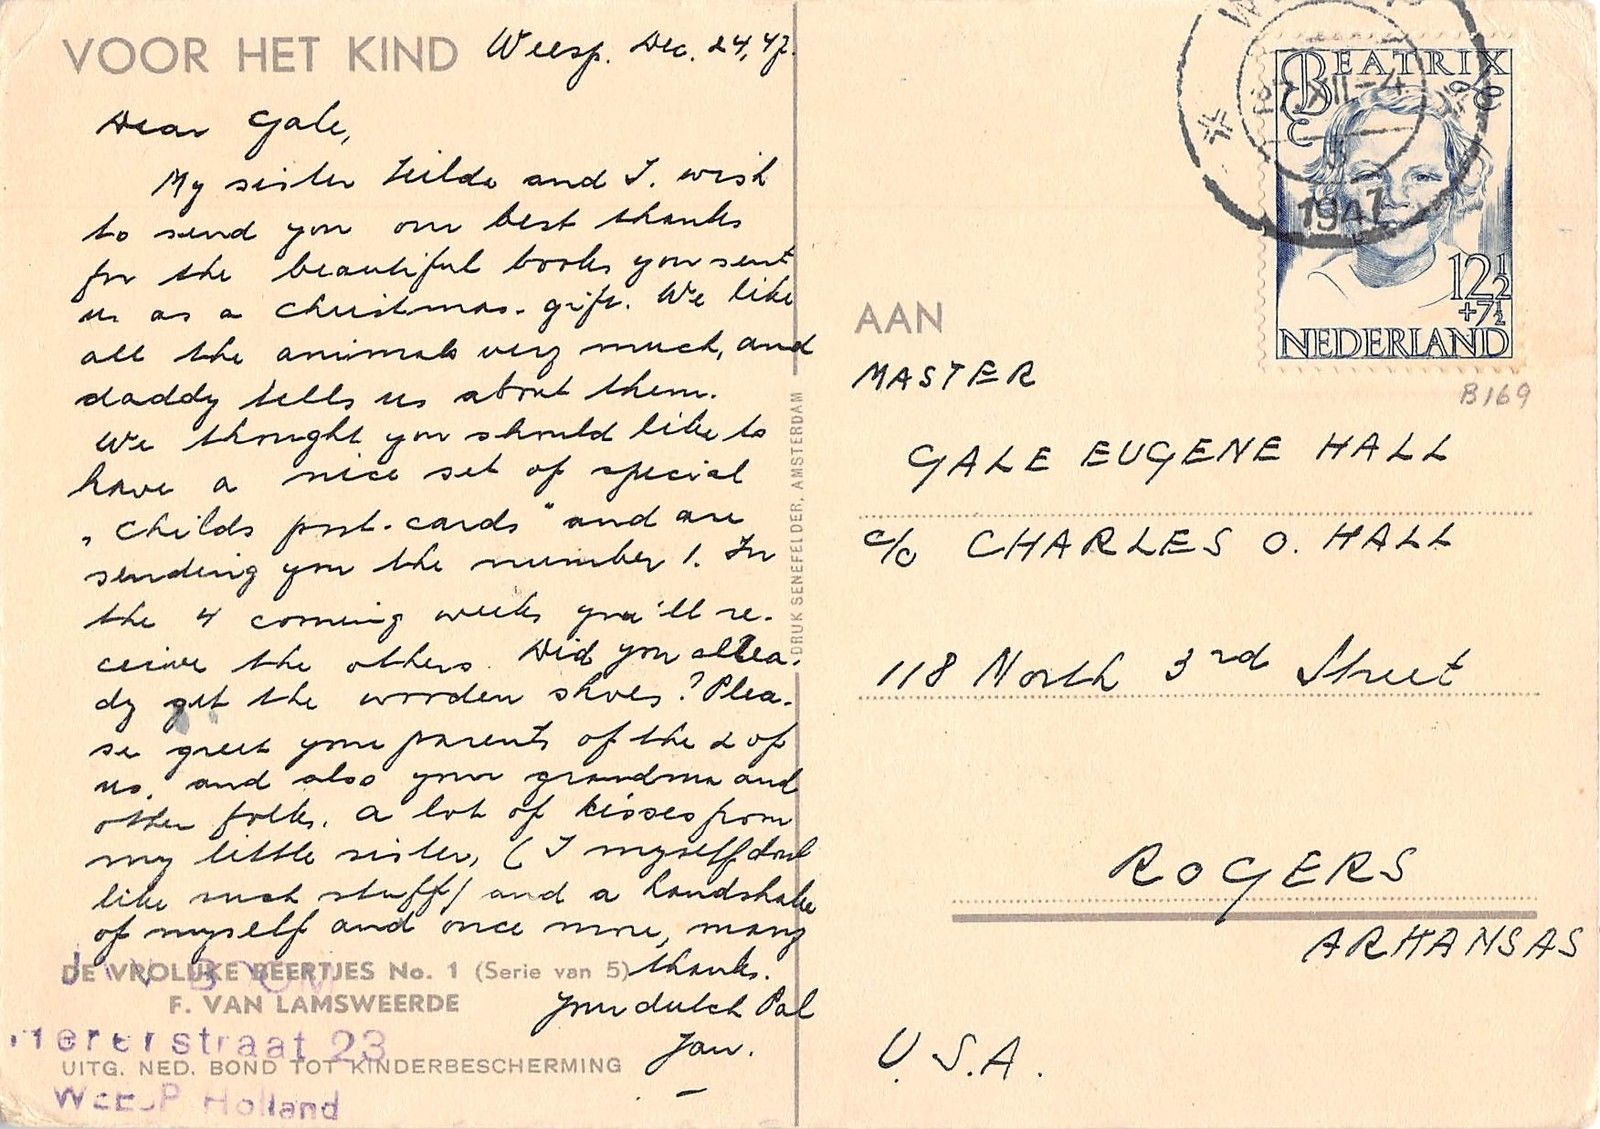 VOOR HET KIND
Weesp. Dec. 24, 47.
Dear Gale,
My sister Hilde and I. wish
to send you our best thanks
for the beautiful books you sent
us as a christmas-gift. We like
all the animals very much, and
daddy tells us about them.
We thought you should like to
have a nice set of special
„Childs post-cards" and are
sending you the number 1. In
the 4 coming weeks you'll re-
ceive the others. Did you allrea-
dy get the wooden shoes? Plea-
se greet your parents of the 2 of
us, and also your grandma and
other folks. A lot of kisses from
my little sister, (I myself dont
like such stuff) and a handshake
of myself and once more, many
thanks.
your dutch Pal
Jan.
DE VROLIJKE BEERTJES No. 1 (Serie van 5)
F. VAN LAMSWEERDE
UITG. NED. BOND TOT KINDERBESCHERMING
JAN BOOM
straat 23
WEESP Holland
DRUK SENEFELDER, AMSTERDAM
BEATRIX
12½
+7½
NEDERLAND
XII-4
1947
B169
AAN
MASTER
GALE EUGENE HALL
c/o CHARLES O. HALL
118 North 3rd Street
ROGERS
ARKANSAS
U.S.A.